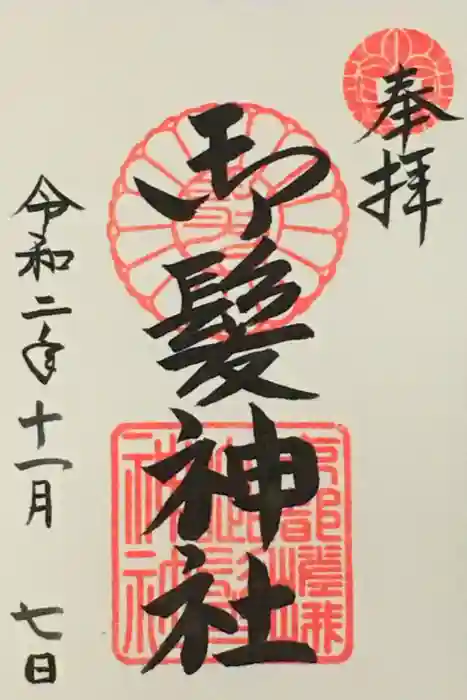 奉拝
御髪神社
令和二年十一月七日